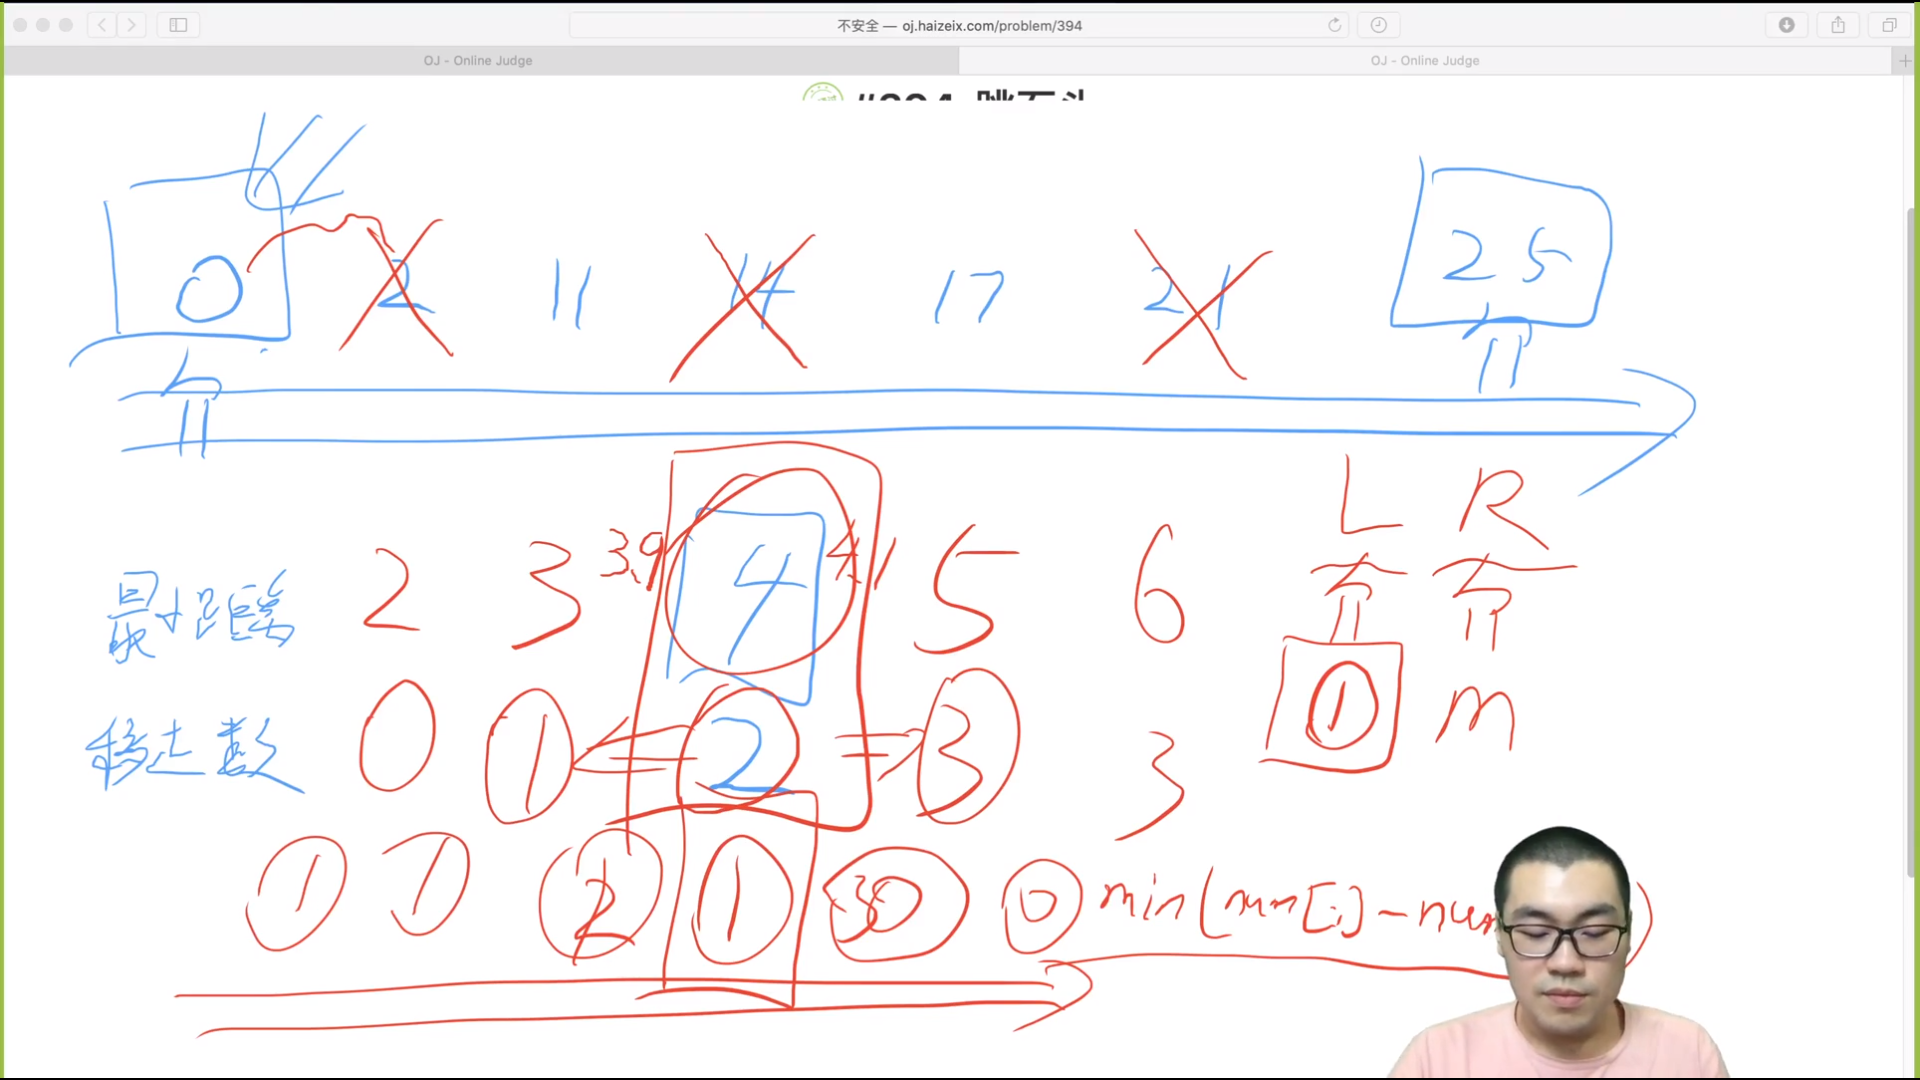 不安全 — oj.haizeix.com/problem/394
OJ - Online Judge
OJ - Online Judge
#394. 跳石头
0 2 11 14 17 21 25
L R
最小距离 2 3 3.9 4 4.1 5 6
移走数 0 1 2 3 3
1 m
1 1 2 1 0 min(num[i]-num